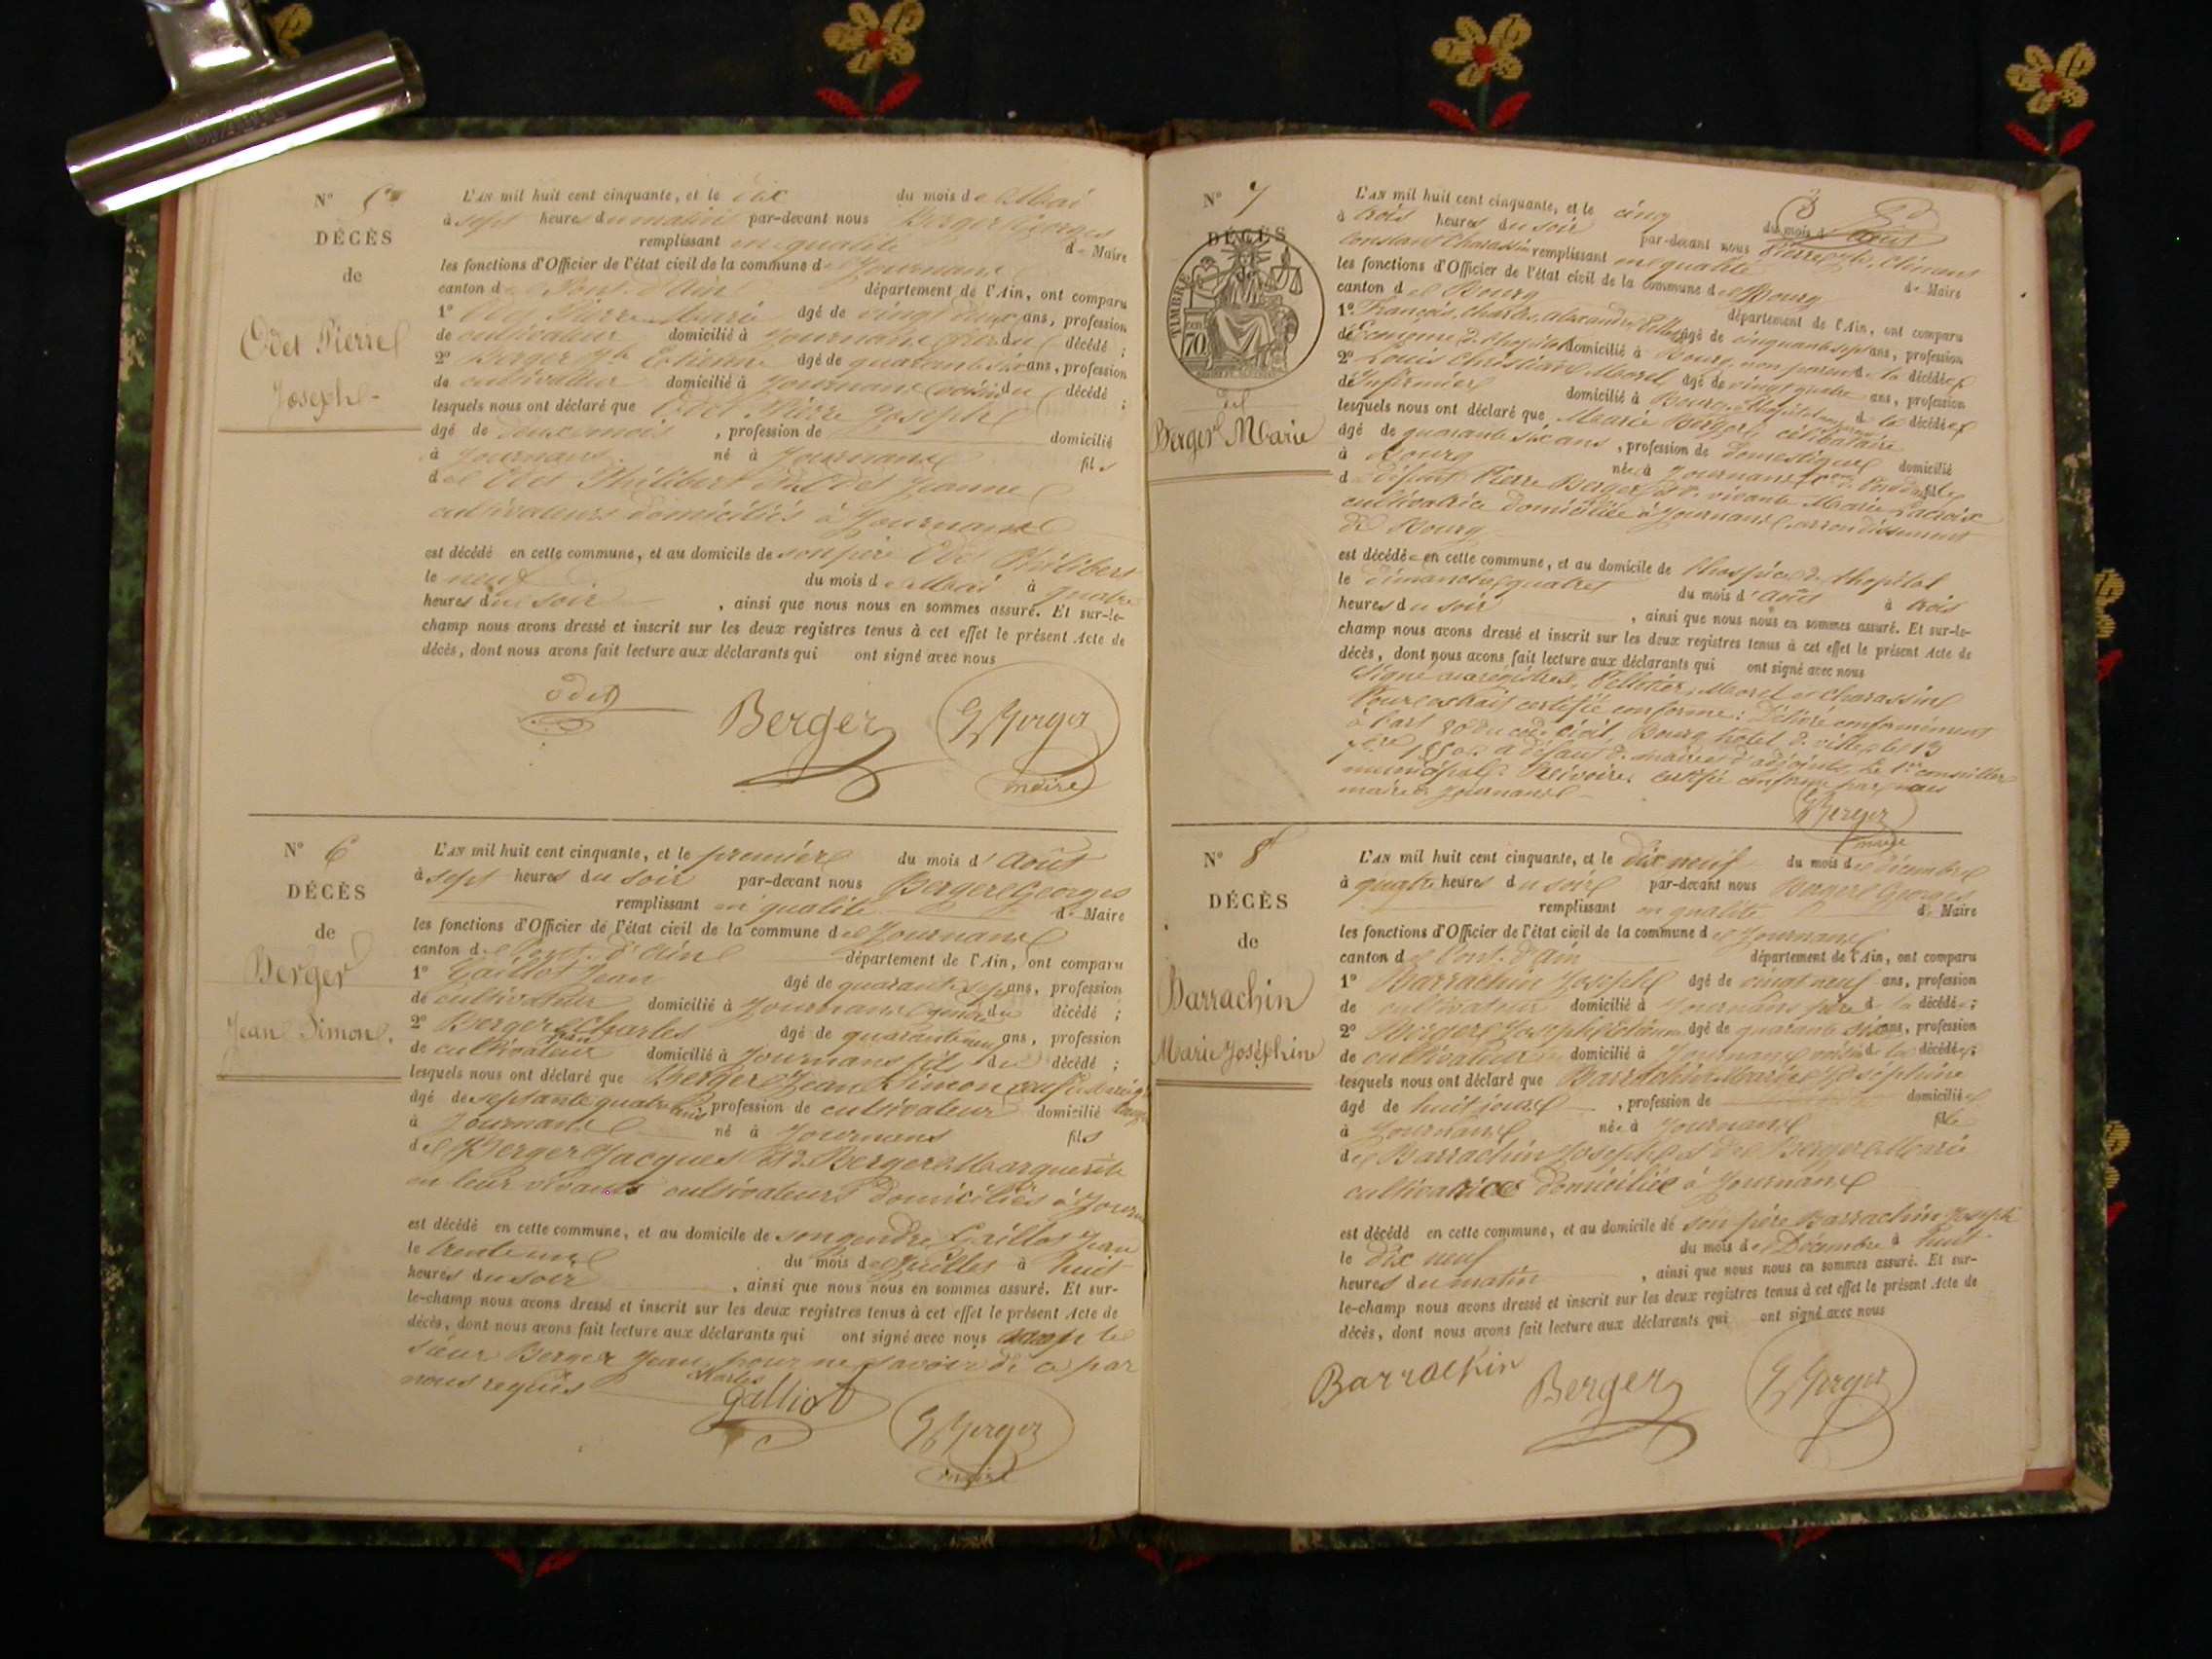 N° 5
DÉCÈS
de
Odet Pierre
Joseph
L'AN mil huit cent cinquante, et le dix du mois de Mai
à sept heures du matin par-devant nous Berger Georges
remplissant en qualité de Maire
les fonctions d'Officier de l'état civil de la commune de Journans
canton de Pont-d'Ain département de l'Ain, ont comparu
1° Odet Pierre Marie âgé de vingt deux ans, profession
de cultivateur domicilié à Journans du décédé ;
2° Berger Jh Etienne âgé de quarante six ans, profession
de cultivateur domicilié à Journans voisin du décédé ;
lesquels nous ont déclaré que Odet Pierre Joseph
âgé de deux mois , profession de domicilié
à Journans né à Journans fils
de Odet Philibert et de Jeanne
cultivateurs domiciliés à Journans
est décédé en cette commune, et au domicile de son père Odet Philibert
le neuf du mois de Mai à quatre
heures du soir , ainsi que nous nous en sommes assuré. Et sur-le-
champ nous avons dressé et inscrit sur les deux registres tenus à cet effet le présent Acte de
décès, dont nous avons fait lecture aux déclarants qui ont signé avec nous
odet Berger G Berger
maire
N° 6
DÉCÈS
de
Berger
Jean Simon.
L'AN mil huit cent cinquante, et le premier du mois d'Août
à sept heures du soir par-devant nous Berger Georges
remplissant en qualité de Maire
les fonctions d'Officier de l'état civil de la commune de Journans
canton de Pont-d'Ain département de l'Ain, ont comparu
1° Gaillot Jean âgé de quarante sept ans, profession
de cultivateur domicilié à Journans gendre du décédé ;
2° Berger Jean Charles âgé de quarante neuf ans, profession
de cultivateur domicilié à Journans fils du décédé ;
lesquels nous ont déclaré que Berger Jean Simon veuf de
âgé de septante quatre ans, profession de cultivateur domicilié
à Journans né à Journans fils
de Berger Jacques et de Berger Marguerite
en leur vivants cultivateurs domiciliés à Journans
est décédé en cette commune, et au domicile de son gendre Gaillot Jean
le trente un du mois de Juillet à huit
heures du soir , ainsi que nous nous en sommes assuré. Et sur-
le-champ nous avons dressé et inscrit sur les deux registres tenus à cet effet le présent Acte de
décès, dont nous avons fait lecture aux déclarants qui ont signé avec nous excepté le
sieur Berger Jean Charles pour ne savoir de ce par
nous requis
galliot G Berger
maire
N° 7
DÉCÈS
de
TIMBRE
70
de
Berger Marie
L'AN mil huit cent cinquante, et le cinq du mois d'août
à trois heures du soir par-devant nous Pierre Jh Clément
Constant Charassin remplissant en qualité de Maire
les fonctions d'Officier de l'état civil de la commune de Bourg
canton de Bourg département de l'Ain, ont comparu
1° François, Charles, Alexandre, Pelletier âgé de cinquante sept ans, profession
de Econome de l'hopital domicilié à Bourg, non parent de la décédée
2° Louis Christian Morel âgé de vingt quatre ans, profession
de Infirmier domicilié à Bourg de la décédée
lesquels nous ont déclaré que Marie Berger, célibataire
âgé de quarante six ans , profession de Domestique domicilié
à Bourg née à Journans fille
de défunt Pierre Berger et de vivante Marie Lacroix
cultivatrice domiciliée à Journans arrondissement
de Bourg
est décédée en cette commune, et au domicile de l'hospice de l'hopital
le dimanche quatre du mois d'août à trois
heures du soir , ainsi que nous nous en sommes assuré. Et sur-le-
champ nous avons dressé et inscrit sur les deux registres tenus à cet effet le présent Acte de
décès, dont nous avons fait lecture aux déclarants qui ont signé avec nous
Signé au registre, Pelletier, Morel et Charassin
Pour extrait certifié conforme : Délivré conformément
à l'art 80 du code civil, Bourg hotel de ville, le 13
7bre 1850 à défaut de maire et d'adjoints le 1er conseiller
municipal certifié conforme par nous
maire Journans
G Berger
maire
N° 8
DÉCÈS
de
Barrachin
Marie Joséphine
L'AN mil huit cent cinquante, et le dix neuf du mois de Décembre
à quatre heures du soir par-devant nous Berger Georges
remplissant en qualité de Maire
les fonctions d'Officier de l'état civil de la commune de Journans
canton de Pont-d'Ain département de l'Ain, ont comparu
1° Barrachin Joseph âgé de vingt neuf ans, profession
de cultivateur domicilié à Journans père de la décédée ;
2° Berger Joseph Etienne âgé de quarante six ans, profession
de cultivateur domicilié à Journans voisin de la décédée ;
lesquels nous ont déclaré que Barrachin Marie Joséphine
âgé de huit jours , profession de domiciliée
à Journans née à Journans fille
de Barrachin Joseph et de Berger Marie
cultivatrice domiciliée à Journans
est décédé en cette commune, et au domicile de son père Barrachin Joseph
le dix neuf du mois de Décembre à huit
heures du matin , ainsi que nous nous en sommes assuré. Et sur-
le-champ nous avons dressé et inscrit sur les deux registres tenus à cet effet le présent Acte de
décès, dont nous avons fait lecture aux déclarants qui ont signé avec nous
Barrachin Berger G Berger